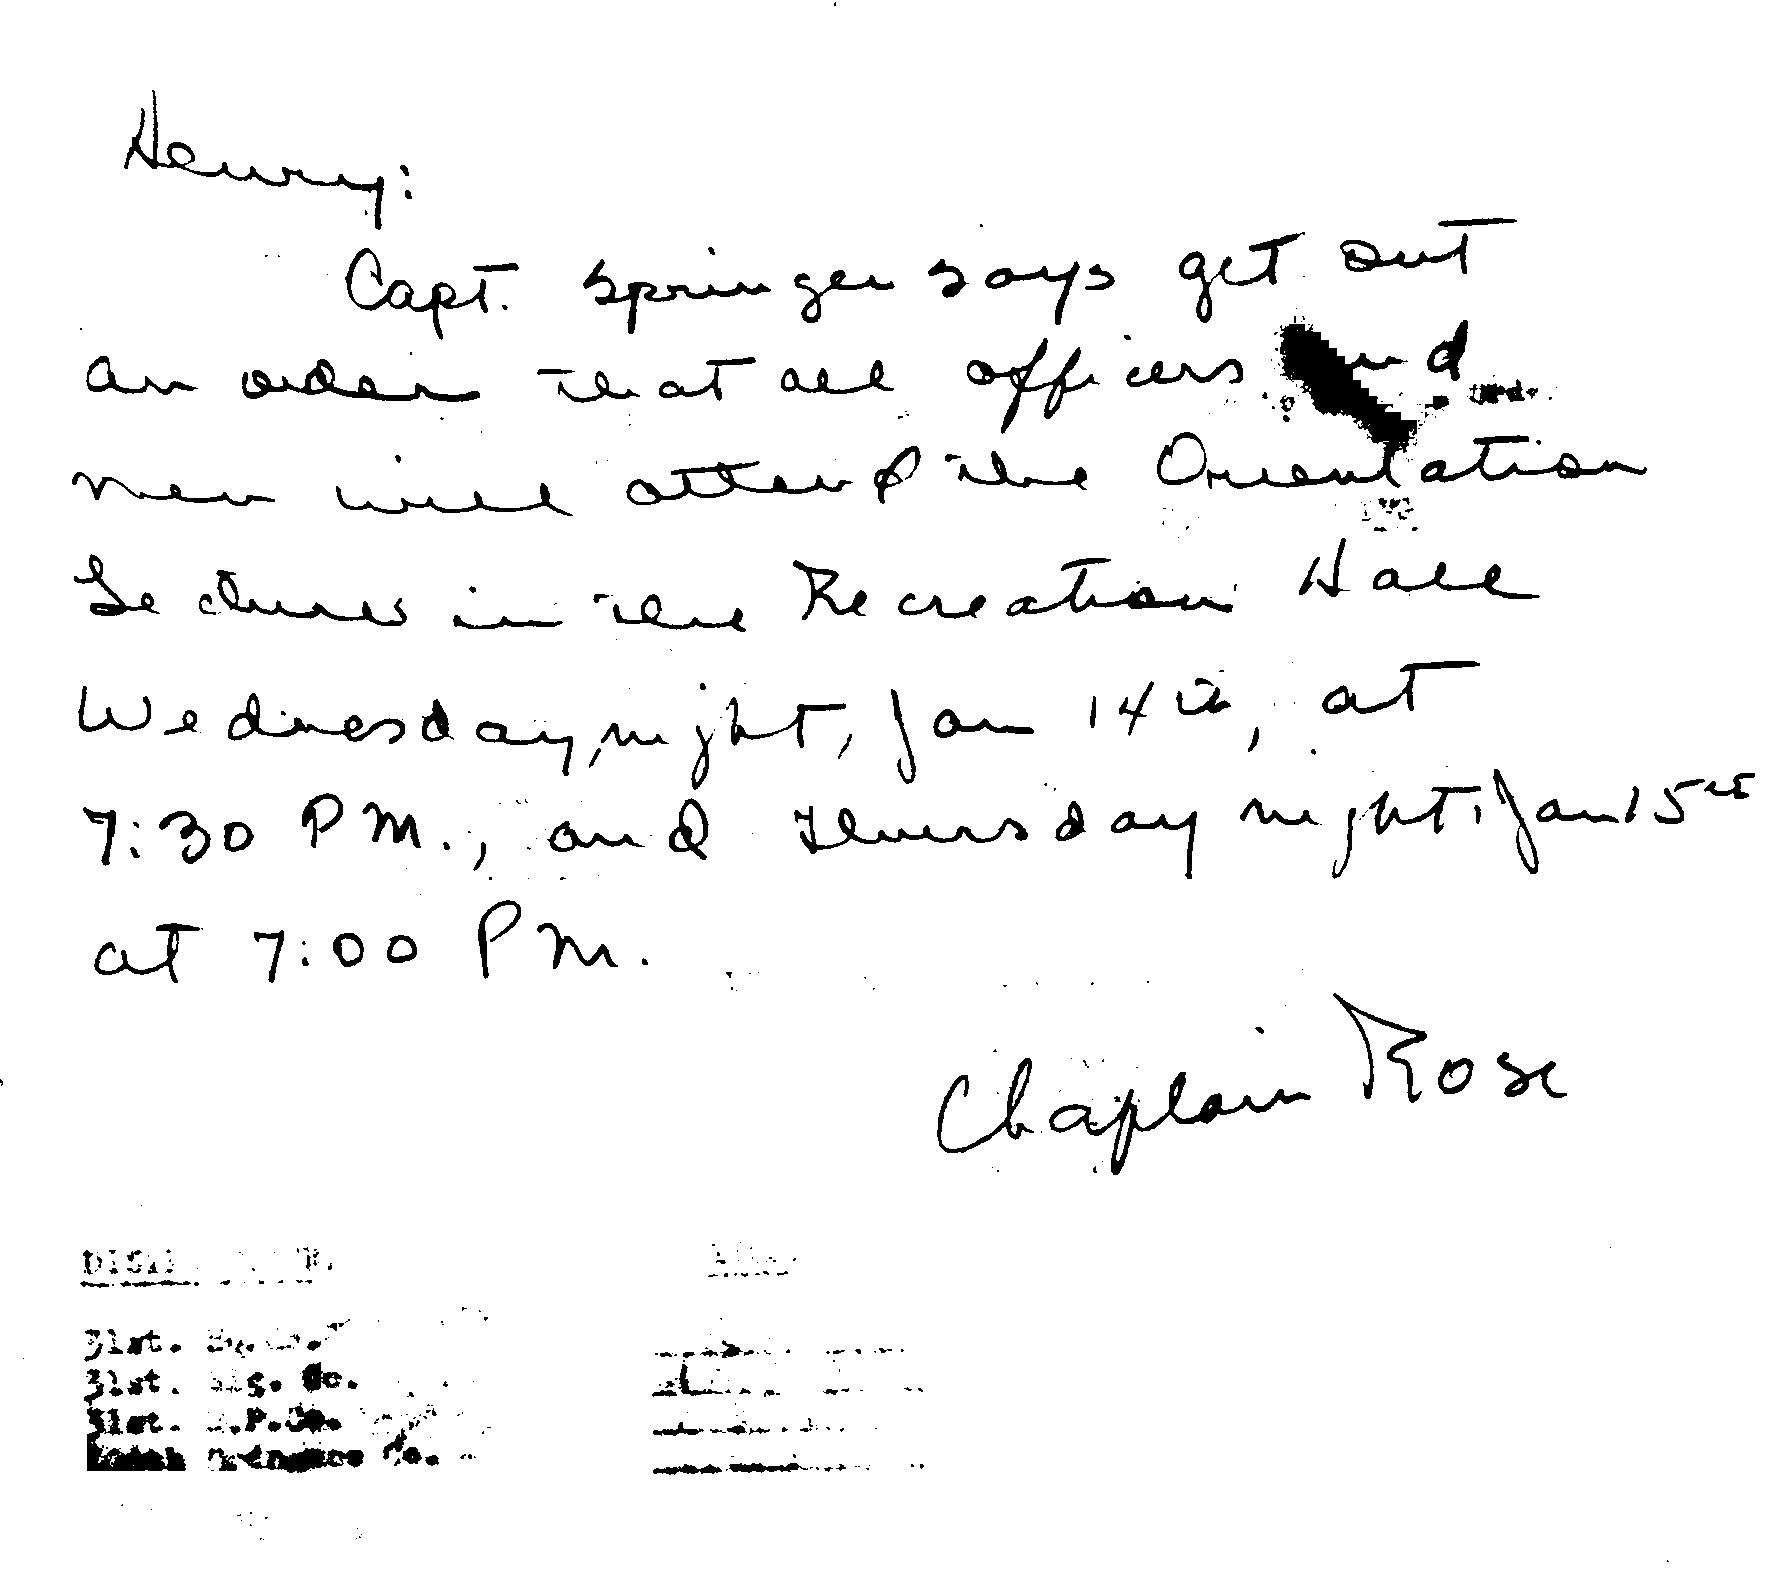 Henry:
Capt. Springer says get out
an order that all officers and
men will attend the Orientation
Lectures in the Recreation Hall
Wednesday, night, Jan 14th, at
7:30 P.M., and Thursday night, Jan 15th
at 7:00 P.M.
Chaplain Rose
31st. Co.
31st. Sig. Co.
31st. M.P.Co.
Ordnance Co.